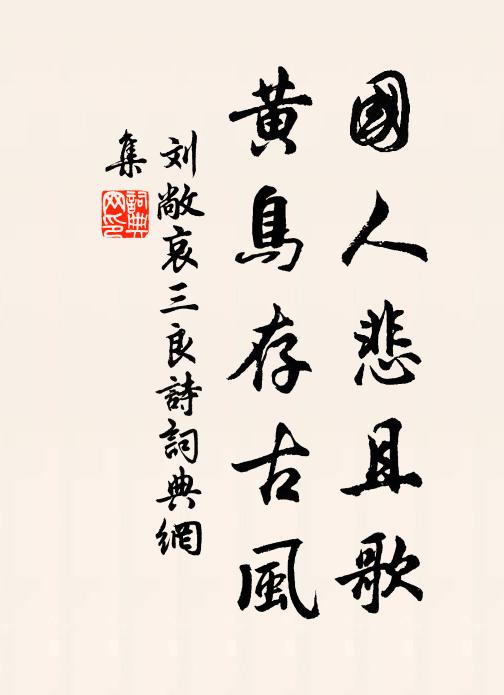 國人悲且歌
黄鳥存古風
刘敞哀三良詩詞典網
集
詞典網印